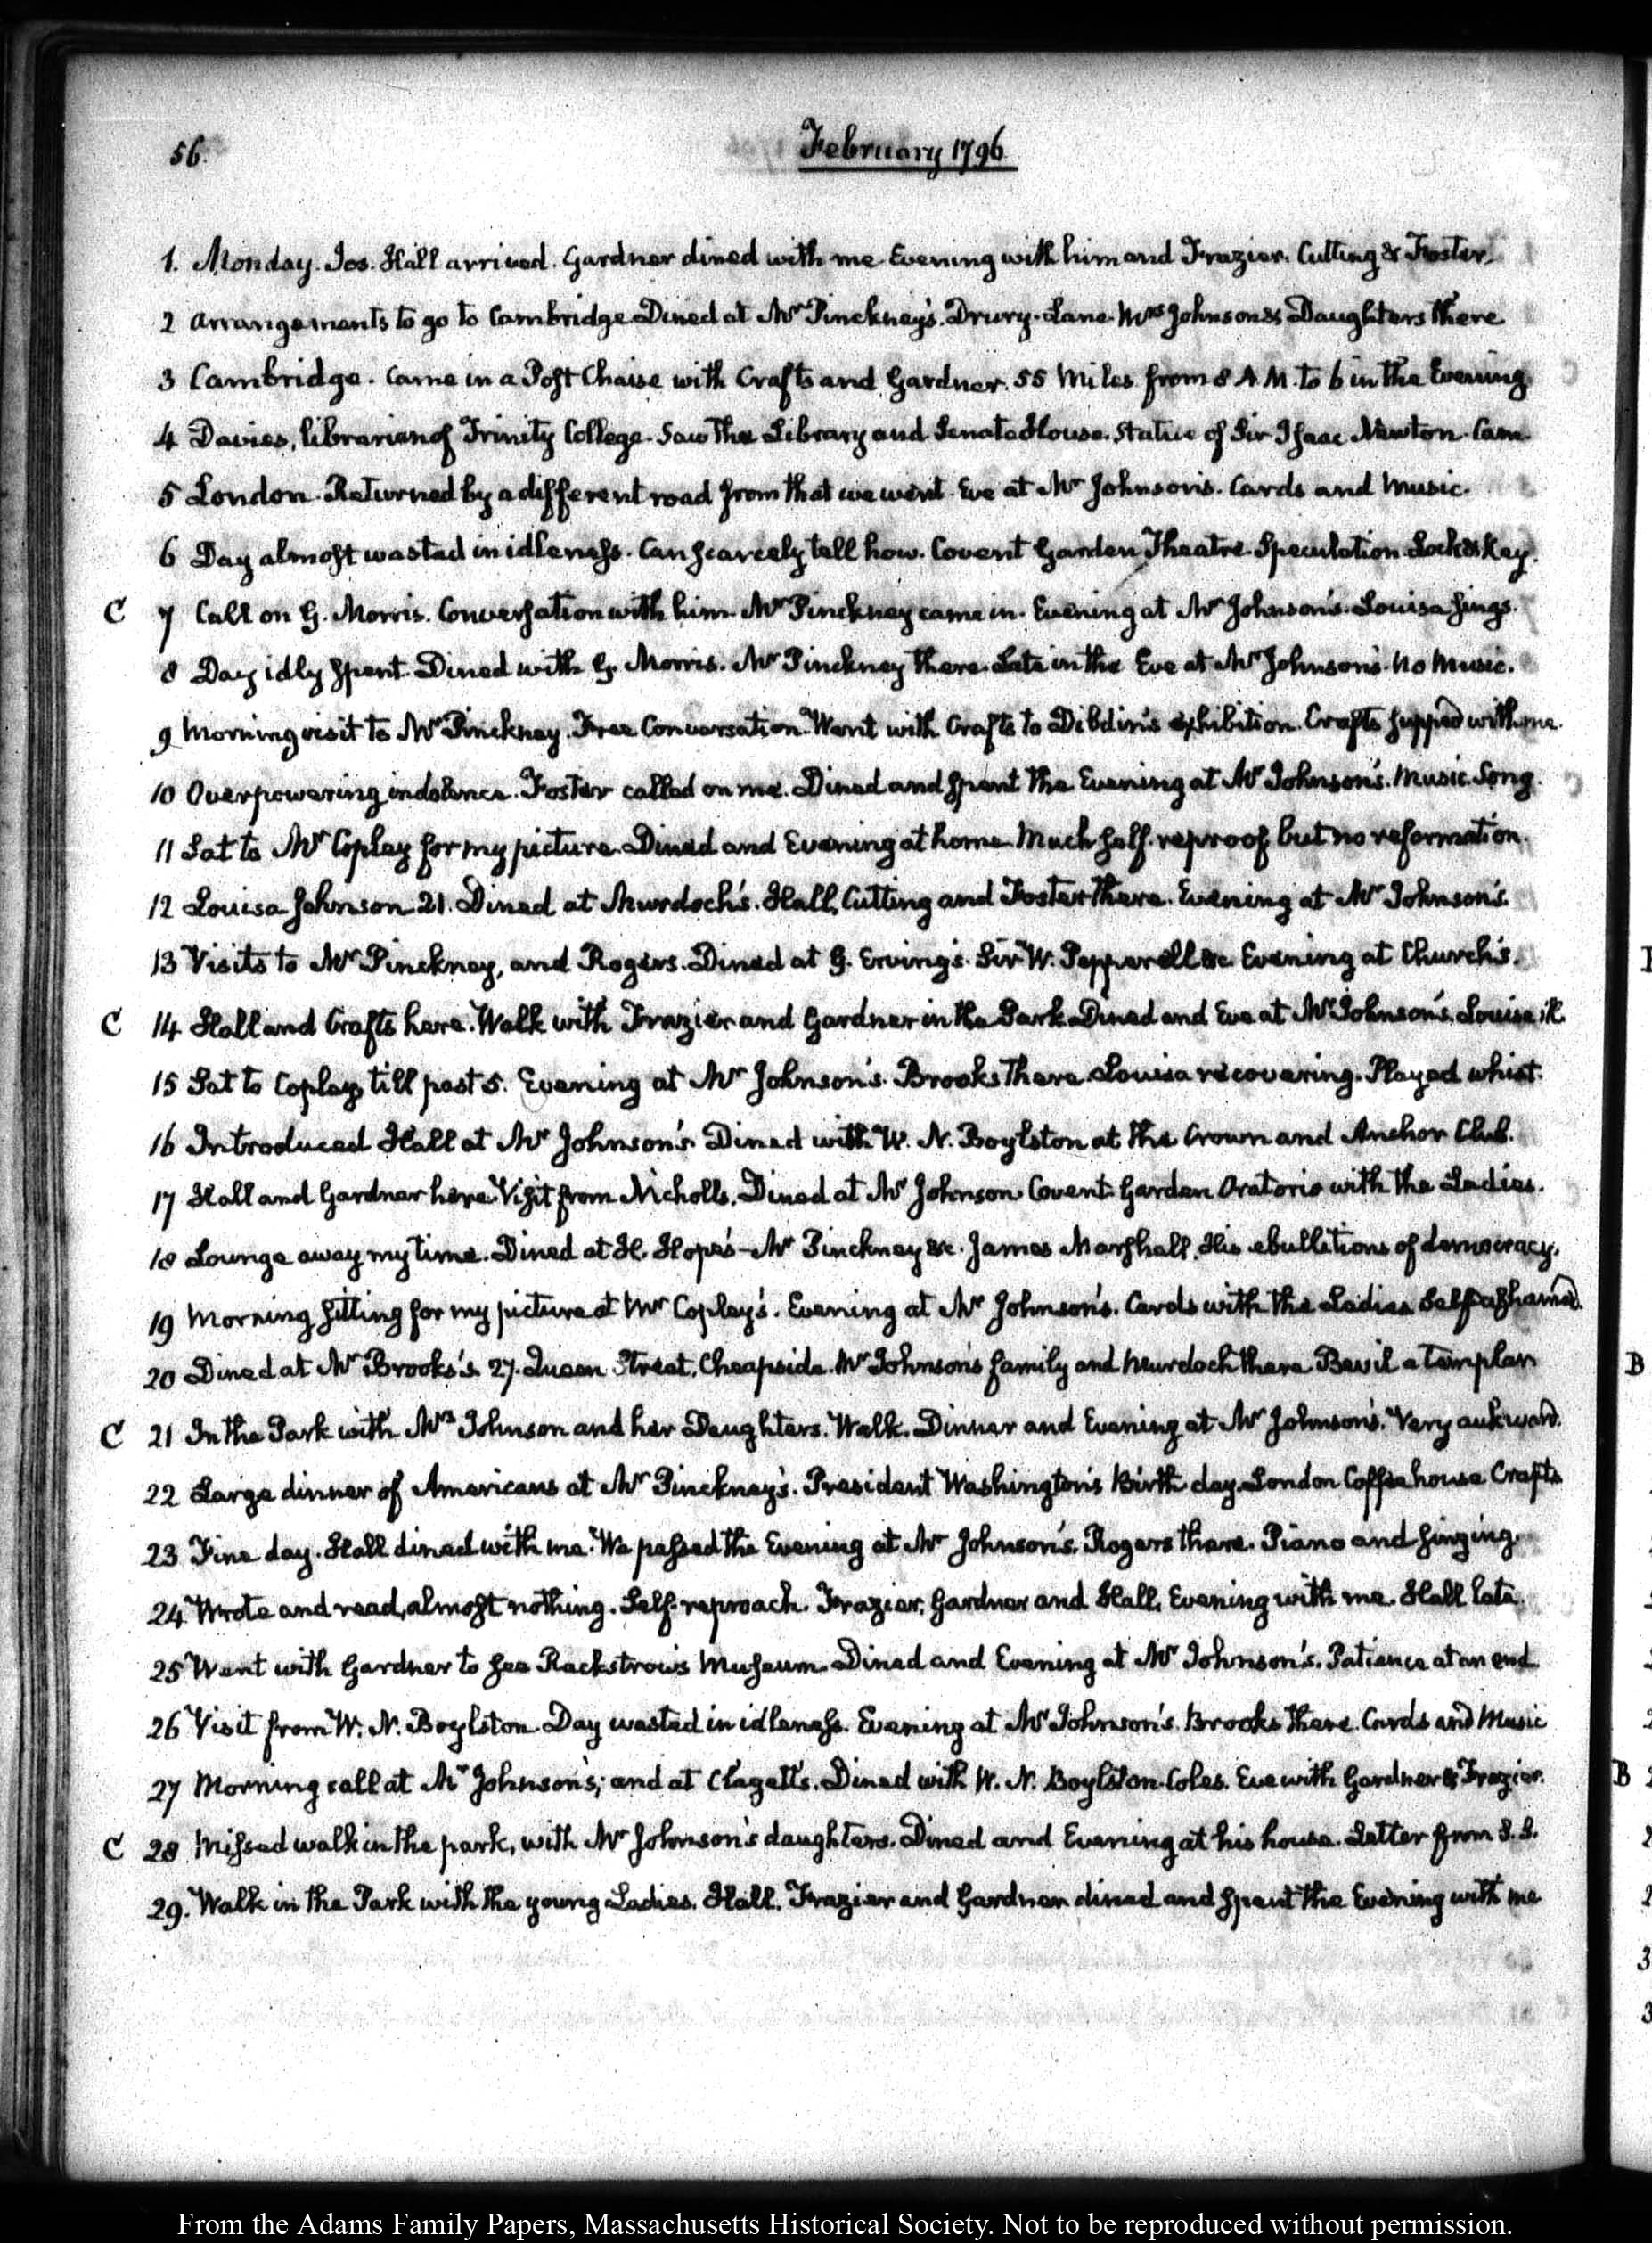 56.
February 1796
1. Monday. Jos. Hall arrived. Gardner dined with me Evening with him and Frazier. Cutting & Foster.
2 Arrangements to go to Cambridge Dined at Mr Pinckney's. Drury-Lane. Mrs Johnson & Daughters there
3 Cambridge. Came in a Post Chaise with Crafts and Gardner. 55 Miles from 8 A.M. to 6 in the Evening.
4 Davies, librarian of Trinity College. Saw the Library and Senate House. Statue of Sir Isaac Newton. Cam.
5 London. Returned by a different road from that we went. Eve at Mr Johnson's. Cards and Music.
6 Day almost wasted in idleness. Can scarcely tell how. Covent Garden Theatre. Speculation. Lock & Key.
C 7 Call on G. Morris. Conversation with him. Mr Pinckney came in. Evening at Mr Johnson's. Louisa sings.
8 Day idly spent. Dined with G. Morris. Mr Pinckney there. Late in the Eve at Mr Johnson's. No Music.
9 Morning visit to Mr Pinckney. Free Conversation. Went with Crafts to Dibdin's exhibition. Crafts supped with me.
10 Overpowering indolence. Foster called on me. Dined and spent the Evening at Mr Johnson's. Music. Song.
11 Sat to Mr Copley for my picture. Dined and Evening at home. Much self-reproof, but no reformation.
12 Louisa Johnson 21. Dined at Murdoch's. Hall, Cutting and Foster there. Evening at Mr Johnson's.
13 Visits to Mr Pinckney, and Rogers. Dined at G. Erving's. Sir W. Pepperell &c. Evening at Church's.
C 14 Hall and Crafts here. Walk with Frazier and Gardner in the Park. Dined and Eve at Mr Johnson's. Louisa ill.
15 Sat to Copley till past 5. Evening at Mr Johnson's. Brooks there. Louisa recovering. Played whist.
16 Introduced Hall at Mr Johnson's. Dined with W. N. Boylston at the Crown and Anchor Club.
17 Hall and Gardner here. Visit from Nicholls. Dined at Mr Johnson. Covent Garden Oratorio with the Ladies.
18 Lounge away my time. Dined at H. Hope's—Mr Pinckney &c. James Marshall. His ebullitions of democracy.
19 Morning sitting for my picture at Mr Copley's. Evening at Mr Johnson's. Cards with the Ladies Self asham'd.
20 Dined at Mr Brooks's. 27. Queen Street, Cheapside. Mr Johnson's family and Murdoch there Bevil a templar
C 21 In the Park with Mrs Johnson and her Daughters. Walk. Dinner and Evening at Mr Johnson's. Very aukward.
22 Large dinner of Americans at Mr Pinckney's. President Washington's Birth day. London Coffee house Crafts
23 Fine day. Hall dined with me. We passed the Evening at Mr Johnson's. Rogers there. Piano and singing.
24 Wrote and read, almost nothing. Self-reproach. Frazier, Gardner and Hall, Evening with me. Hall late.
25 Went with Gardner to see Rackstrow's Museum. Dined and Evening at Mr Johnson's. Patience at an end
26 Visit from W. N. Boylston. Day wasted in idleness. Evening at Mr Johnson's. Brooks there. Cards and Music
27 Morning call at Mr Johnson's; and at Clagett's. Dined with W. N. Boylston. Coles. Eve with Gardner & Frazier.
C 28 Missed walk in the park, with Mr Johnson's daughters. Dined and Evening at his house. Letter from S. S.
29. Walk in the Park with the young Ladies. Hall, Frazier and Gardner dined and spent the Evening with me
From the Adams Family Papers, Massachusetts Historical Society. Not to be reproduced without permission.